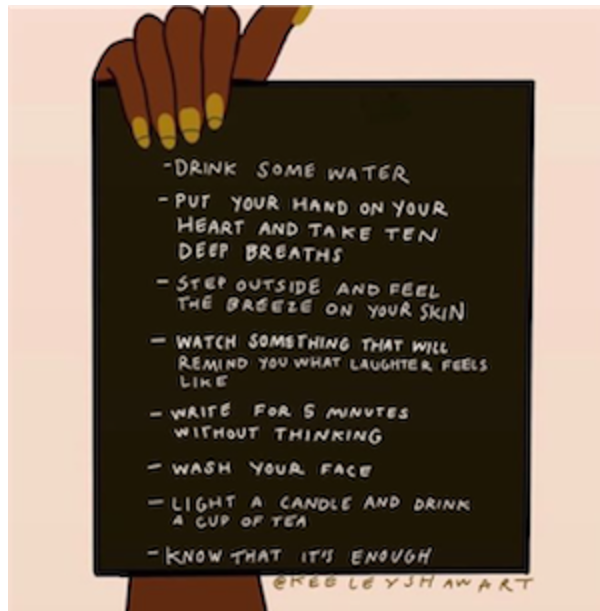 -DRINK SOME WATER
-PUT YOUR HAND ON YOUR
HEART AND TAKE TEN
DEEP BREATHS
- STEP OUTSIDE AND FEEL
THE BREEZE ON YOUR SKIN
- WATCH SOMETHING THAT WILL
REMIND YOU WHAT LAUGHTER FEELS
LIKE
- WRITE FOR 5 MINUTES
WITHOUT THINKING
- WASH YOUR FACE
- LIGHT A CANDLE AND DRINK
A CUP OF TEA
-KNOW THAT IT'S ENOUGH
@KEELEYSHAWART